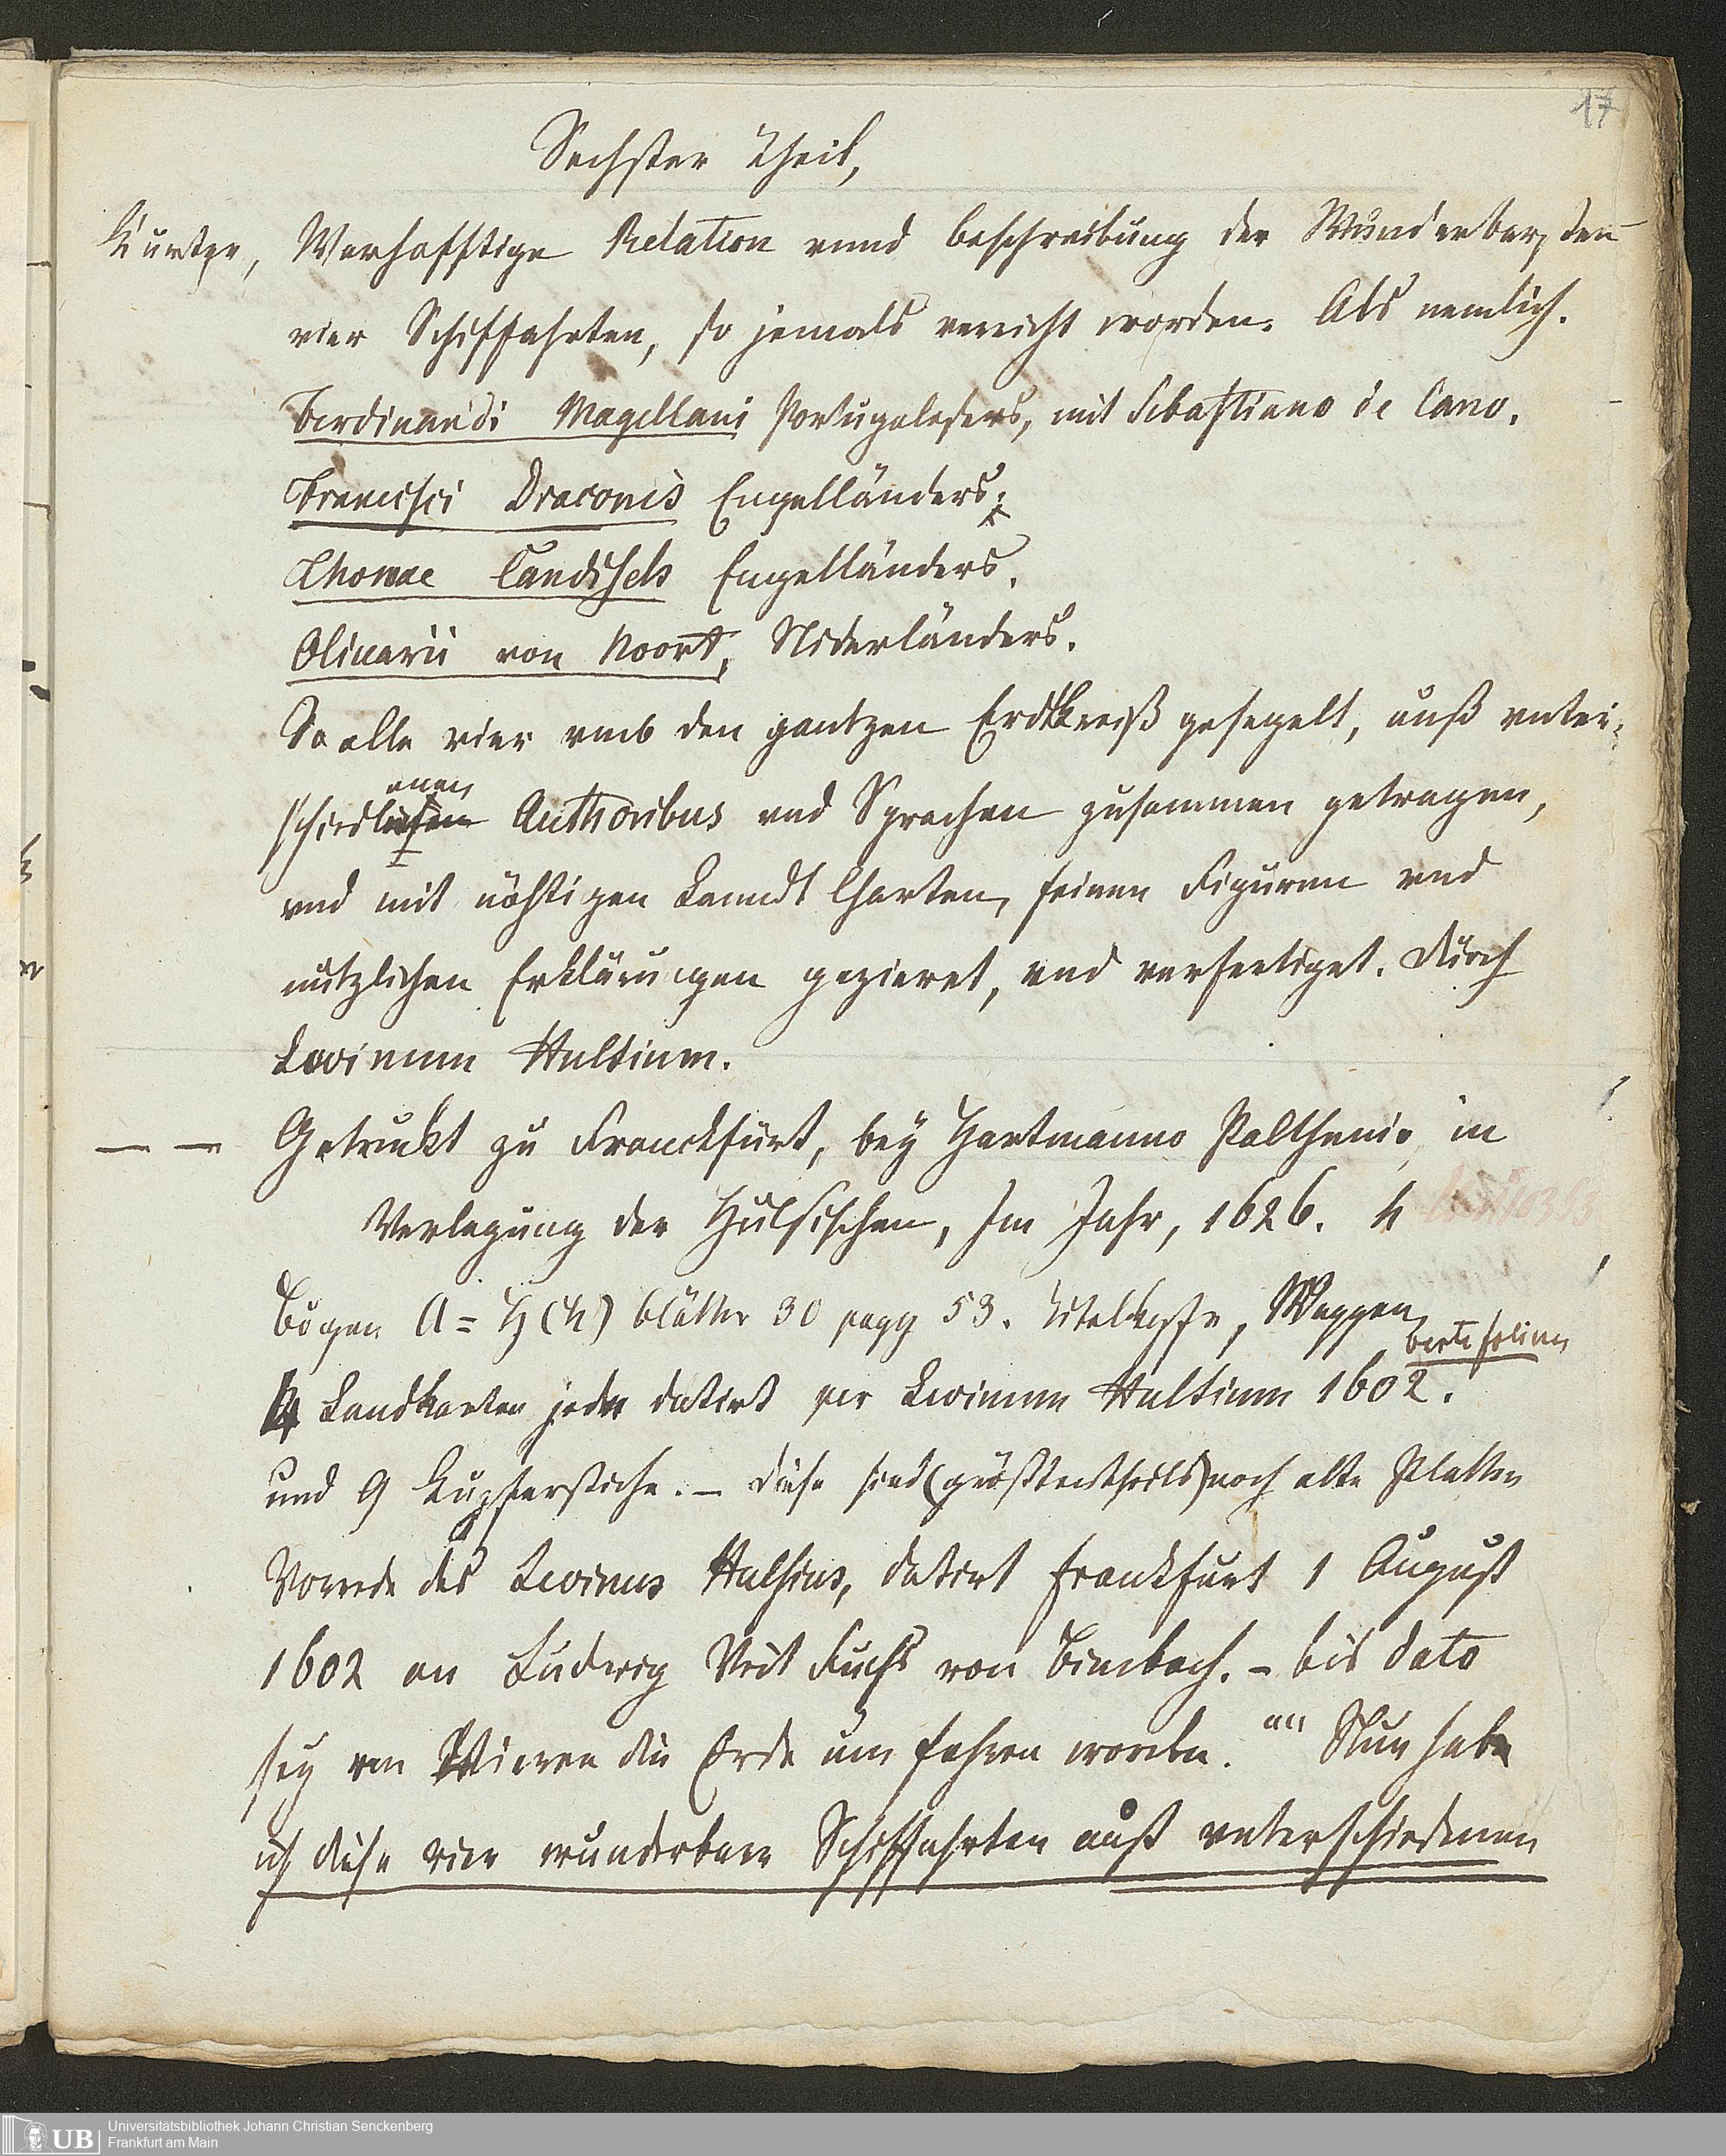 17
Sechster Theil,
Kurtze, Warhafftige Relation vnnd beschreibung der Wunderbarsten
vier Schiffahrten, so jemals verricht worden. Als nemlich.
Ferdinandi Magellani Portugalesers, mit Sebastiano de Cano.
Francisci Draconis Engelländers.
Thomae Candisch Engelländers.
Olivarii von Noort, Niderländers.
So alle vier vmb den gantzen Erdtkreiß gesegelt, auß vnter-
schiedlichen enen Authoribus vnd Sprachen zusammen getragen,
vnd mit nöhtigen Lanndt Charten, feinen Figuren vnd
nutzlichen Erklärungen gezieret, vnd verfertiget. Durch
Levinum Hulsium.
— — Getruckt zu Franckfurt, bey Hartmanno Palthenio, in
Verlegung der Hulsischen, Im Jahr, 1626. 4
Bogen A = H (4) blätter 30 pagg 53. Titelkupfer, Wappen,
4 Landkarten jede datirt per Levinum Hulsium 1602.
und 9 Kupferstiche. – Diese sind (größtentheils) noch alte Platten
Vorrede des Levinus Hulsius, datirt Frankfurt 1 August
1602 an Ludwig Veit Fuchs von Bimbach. – bis dato
sey von Vieren die Erde um fahren worden. "" Nun habe
ich diese vier wunderbare Schiffahrten auß vnterschiedenen
UB Universitätsbibliothek Johann Christian Senckenberg
Frankfurt am Main